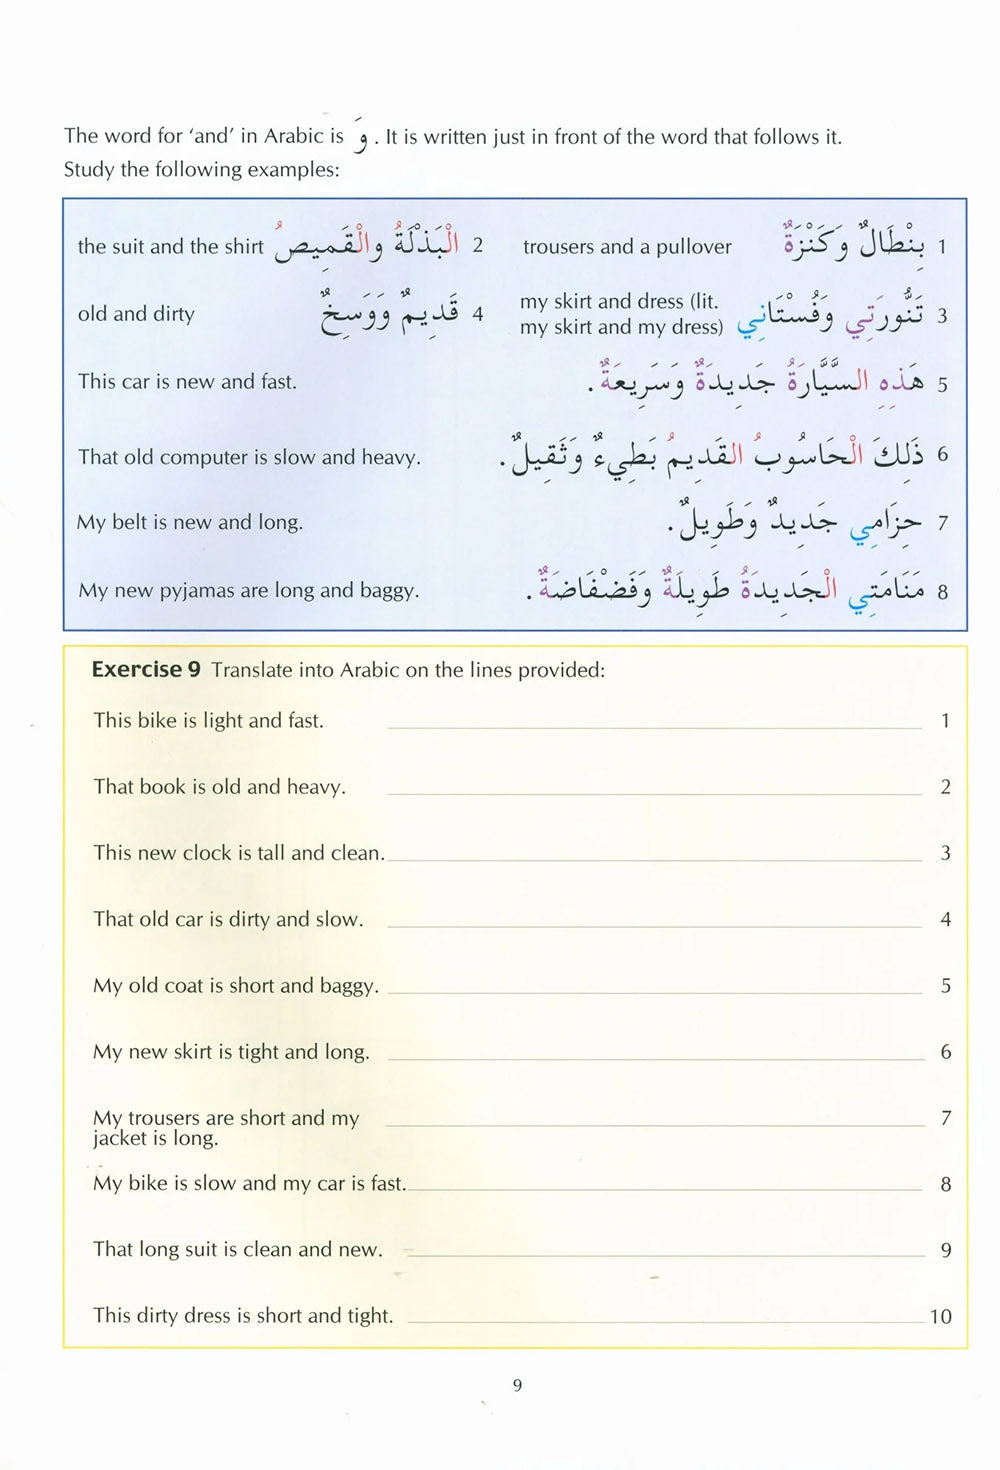 The word for ‘and’ in Arabic is وَ . It is written just in front of the word that follows it.
Study the following examples:
the suit and the shirt الْبَذْلَةُ والْقَمِيصُ 2
trousers and a pullover بِنْطَالٌ وَكَنْزَةٌ 1
old and dirty قَدِيمٌ وَوَسِخٌ 4
my skirt and dress (lit.
my skirt and my dress) تَنُّورَتِي وَفُسْتَانِي 3
This car is new and fast. هَذِهِ السَّيَّارَةُ جَدِيدَةٌ وَسَرِيعَةٌ . 5
That old computer is slow and heavy. ذَلِكَ الْحَاسُوبُ القَدِيمُ بَطِيءٌ وَثَقِيلٌ . 6
My belt is new and long. حِزَامِي جَدِيدٌ وَطَوِيلٌ . 7
My new pyjamas are long and baggy. مَنَامَتِي الْجَدِيدَةُ طَوِيلَةٌ وَفَضْفَاضَةٌ . 8
Exercise 9 Translate into Arabic on the lines provided:
This bike is light and fast. 1
That book is old and heavy. 2
This new clock is tall and clean. 3
That old car is dirty and slow. 4
My old coat is short and baggy. 5
My new skirt is tight and long. 6
My trousers are short and my 7
jacket is long.
My bike is slow and my car is fast. 8
That long suit is clean and new. 9
This dirty dress is short and tight. 10
9